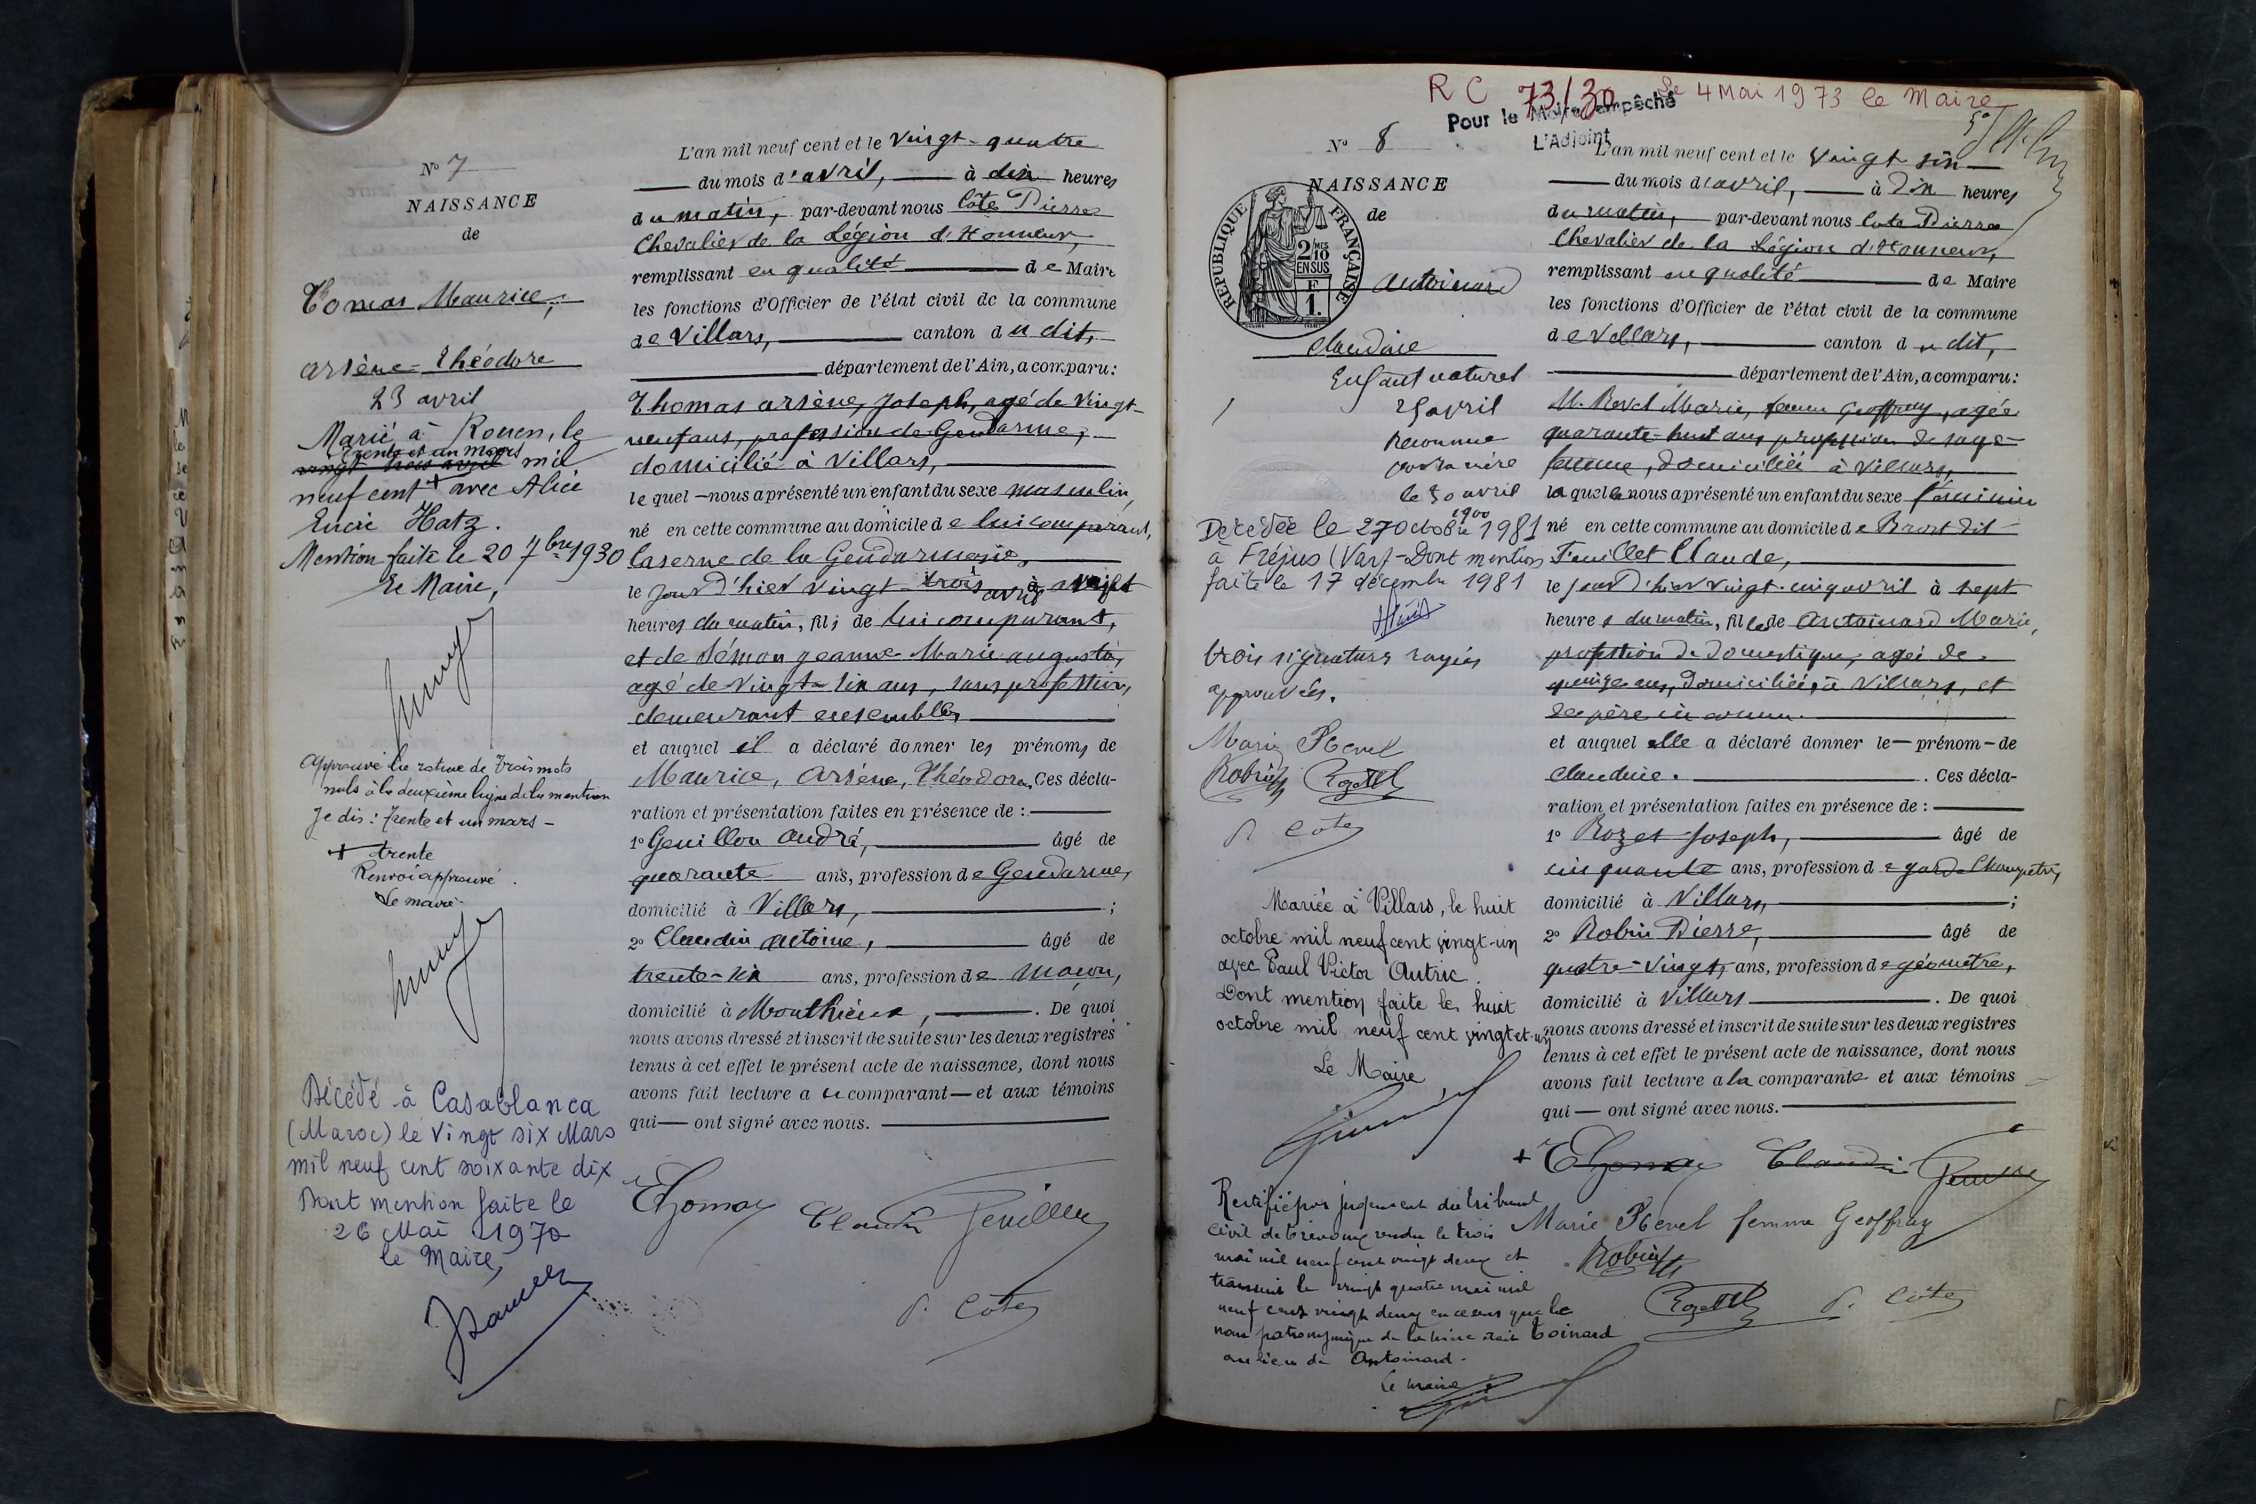 N° 7
NAISSANCE
de
Tomas Maurice,
Arsène-Théodore
23 avril
Marié à Rouen, le
trente et un mars
vingt trois avril mil
neuf cent + avec Alice
Lucie Hatz.
Mention faite le 20 7bre 1930
Le Maire,
Approuvé la rature de trois mots
nuls à la deuxième ligne de la mention
Je dis : trente et un mars -
+ trente
Renvoi approuvé.
Le maire
Décédé à Casablanca
(Maroc) le vingt six Mars
mil neuf cent soixante dix
Dont mention faite le
26 Mai 1970
le Maire,
L'an mil neuf cent et le vingt-quatre
du mois d'avril, à dix heures
du matin, par-devant nous Côte Pierre
Chevalier de la Légion d'Honneur,
remplissant en qualité de Maire
les fonctions d'Officier de l'état civil de la commune
de Villars, canton du dit,
département de l'Ain, a comparu :
Thomas Arsène, Joseph, agé de vingt-
neuf ans, profession de Gendarme,
domicilié à Villars,
lequel nous a présenté un enfant du sexe masculin,
né en cette commune au domicile de lui comparant,
caserne de la Gendarmerie,
le jour d'hier vingt-trois avril à
heures du matin, fils de lui comparant,
et de Jeanne Marie Augusta,
agé de vingt-six ans, sans profession,
demeurant ensembles
et auquel il a déclaré donner les prénoms de
Maurice, Arsène, Théodore, Ces décla-
ration et présentation faites en présence de :
1° Genillon André, âgé de
quarante ans, profession de Gendarme,
domicilié à Villars, ;
2° Claudin Antoine, âgé de
trente-six ans, profession de maçon,
domicilié à Monthieux, . De quoi
nous avons dressé et inscrit de suite sur les deux registres
tenus à cet effet le présent acte de naissance, dont nous
avons fait lecture au comparant — et aux témoins
qui — ont signé avec nous.
Thomas Claudin Genillon
P. Côte
R C 73/30 Le 4 Mai 1973 le Maire
Pour le Maire empêché
L'Adjoint
N° 8
NAISSANCE
de
RÉPUBLIQUE FRANÇAISE
2/10 MES
EN SUS
F
1.
Antoinard
Claudine
Enfant naturel
25 avril
Reconnue
par sa mère
le 30 avril
1900
Décédée le 27 Octobre 1981
à Fréjus (Var) - Dont mention
faite le 17 décembre 1981
trois signatures rayées
approuvées.
Marie Revel
Robin Rozet
P. Côte
Mariée à Villars, le huit
octobre mil neuf cent vingt-un
avec Paul Victor Autric.
Dont mention faite le huit
octobre mil neuf cent vingt et un
Le Maire
Rectifié par jugement du tribunal
civil de Trévoux rendu le trois
mai mil neuf cent vingt deux et
transcrit le vingt quatre mai mil
neuf cent vingt deux en ce sens que le
nom patronymique de la mère soit Toinard
au lieu de Antoinard.
Le maire
L'an mil neuf cent et le vingt six
du mois d'avril, à dix heures
du matin, par-devant nous Cote Pierre
Chevalier de la Légion d'Honneur,
remplissant en qualité de Maire
les fonctions d'Officier de l'état civil de la commune
de Villars, canton du dit,
département de l'Ain, a comparu :
M. Revel Marie, femme Geoffray, agée
quarante-huit ans, profession de sage-
femme, domiciliée à Villars,
laquelle nous a présenté un enfant du sexe féminin
né en cette commune au domicile de dit
Feuillet Claude,
le jour d'hier vingt-cinq avril à sept
heures du matin, fille de Antoinard Marie,
profession de domestique, agée de
ans, domiciliée à Villars, et
de père inconnu.
et auquel elle a déclaré donner le — prénom — de
Claudine. . Ces décla-
ration et présentation faites en présence de :
1° Rozet Joseph, âgé de
cinquante ans, profession de garde Champêtre,
domicilié à Villars, ;
2° Robin Pierre, âgé de
quatre-vingt, ans, profession de géomètre,
domicilié à Villars . De quoi
nous avons dressé et inscrit de suite sur les deux registres
tenus à cet effet le présent acte de naissance, dont nous
avons fait lecture à la comparante et aux témoins
qui — ont signé avec nous.
+ Thomas Claudin Genillon
Marie Revel femme Geoffray
Robin
Rozet P. Côte